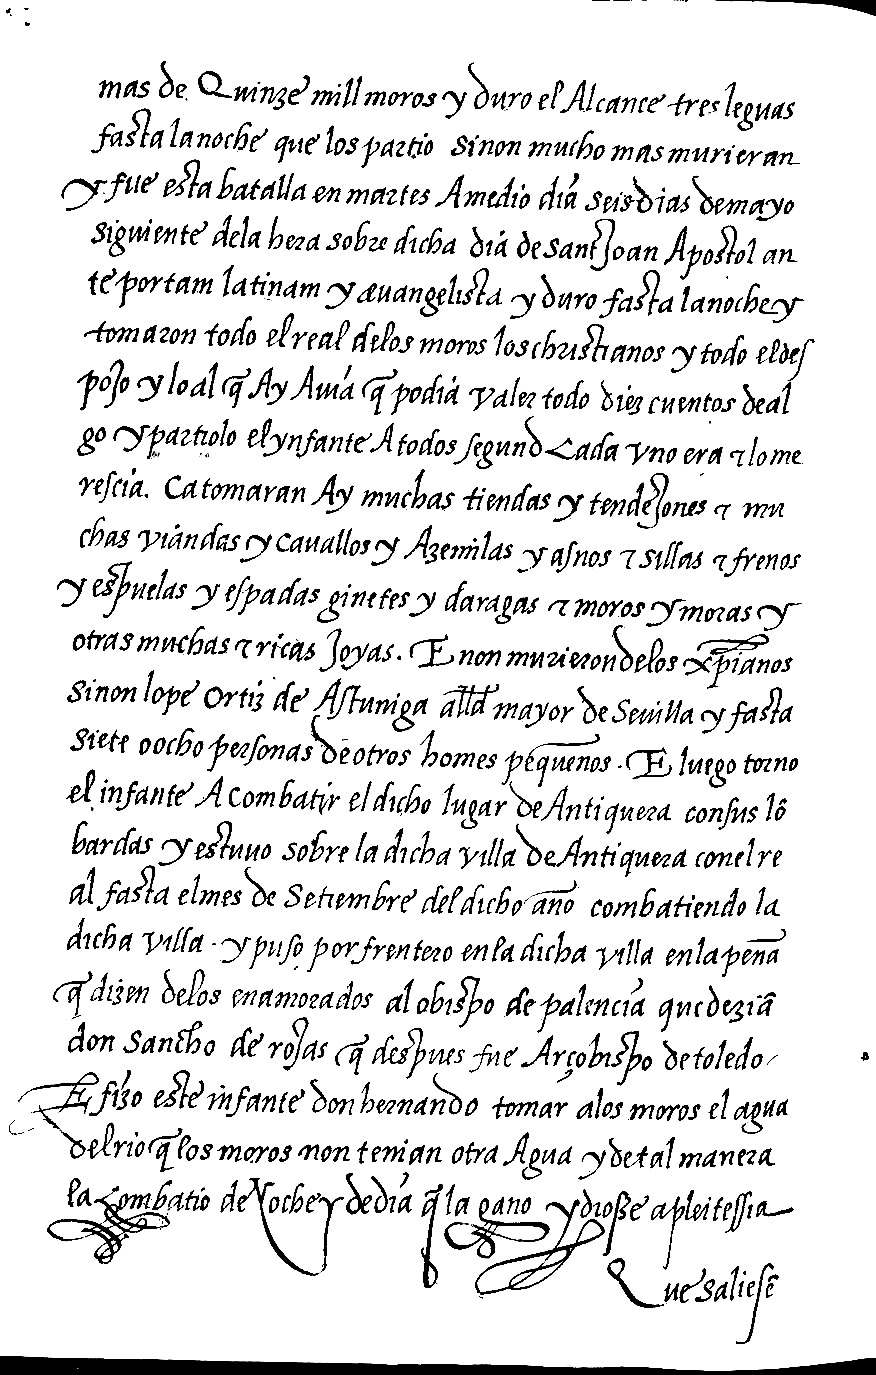 mas de Quinze mill moros y duro el Alcance tres leguas
fasta la noche que los partio sinon mucho mas murieran
y fue esta batalla en martes A medio día seis dias de mayo
siguiente dela hera sobre dicha día de sant Joan Apostol an
te portam latinam y æuangelista y duro fasta la noche y
tomaron todo el real delos moros los christianos y todo el des
pojo y lo al q̃ Ay Auía q̃ podiá valer todo diez cuentos de al
go y partiolo el ynfante A todos segund cada vno era ⁊ lo me
resciá. Ca tomaran Ay muchas tiendas y tendejones ⁊ mu
chas viándas y cauallos y Azemilas y asnos ⁊ sillas ⁊ frenos
y espuelas y espadas ginetes y daragas ⁊ moros y moras y
otras muchas ⁊ ricas Joyas. E non murieron delos xp̃ianos
sinon lope Ortiz de Astuniga alld̃ mayor de Seuilla y fasta
siete o ocho personas de otros homes pequenos. E luego torno
el infante A combatir el dicho lugar de Antiquera con sus lõ
bardas y estuuo sobre la dicha villa de Antiquera con el re
al fasta el mes de Setiembre del dicho año combatiendo la
dicha villa. y puso por frentero en la dicha villa en la peña
q̃ dizen delos enamorados al obispo de palencía que deziã
don Sancho de rojas q̃ despues fue Arçobispo de toledo
E fizo este infante don hernando tomar alos moros el agua
del rio q̃ los moros non tenian otra Agua y de tal manera
la combatio de Noche y de día q̃ la gano y diosse a pleitessia
Que saliesẽ